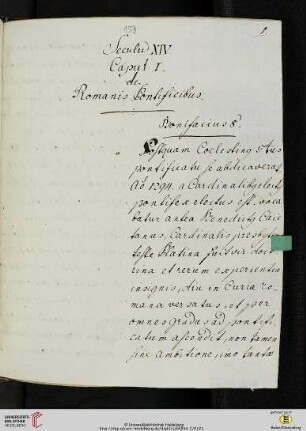 159
1.
Seculū XIV
Caput I.
de
Romanis Pontificibus.
Bonifacius 8.
Postquam Coelestinus 5tus
pontificatu se abdicaverat
Aō 1294 a Cardinalibus
pontifex electus est. voca
batur antea Benedictus Caie
tanus, Cardinalis presbyter
teste Platina fuit vir doc
rina et rerum experientia
insignis, diu in Curia ro
mana versatus, et per
omnes gradus ad pontifi
catum ascendit, non tamen
sine ambitione, imo tantae
UNIVERSITÄTS-
BIBLIOTHEK
HEIDELBERG
© Universitätsbibliothek Heidelberg